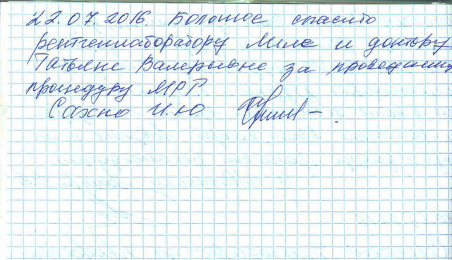 22.07.2016. Большое спасибо
рентгенлаборатору Миле и доктору
Татьяне Валерьевне за проведенную
процедуру МРТ
Сахно И.Ю